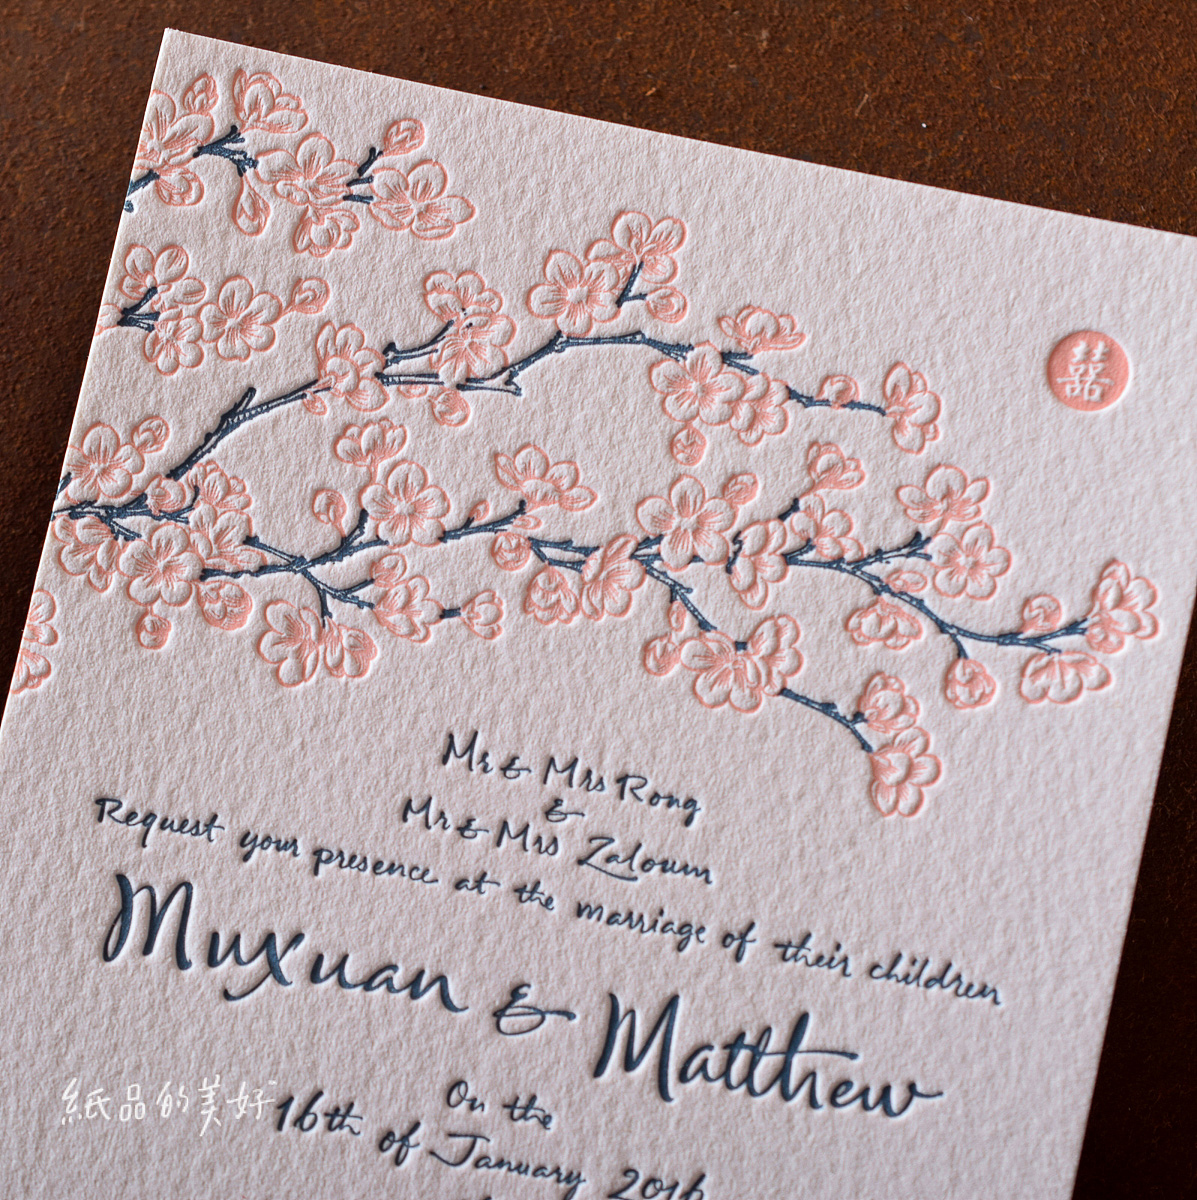 囍
Mr & Mrs Rong
&
Mr & Mrs Zaloum
Request your presence at the marriage of their children
Muxuan & Matthew
On the
16th of January 2016
紙品的美好